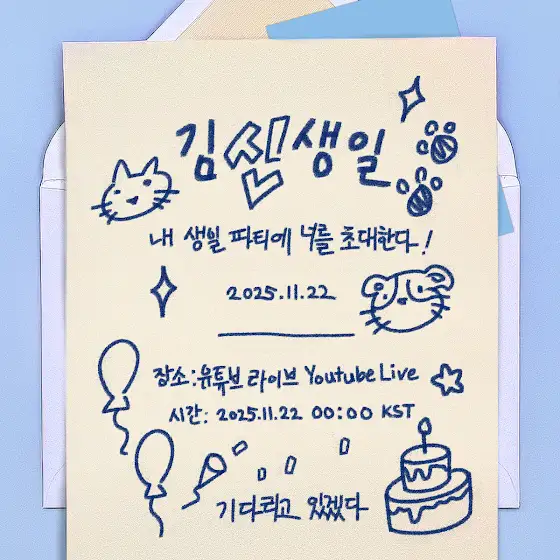 김신생일
내 생일 파티에 너를 초대한다!
2025.11.22
장소: 유튜브 라이브 Youtube Live
시간: 2025.11.22 00:00 KST
기다리고 있겠다